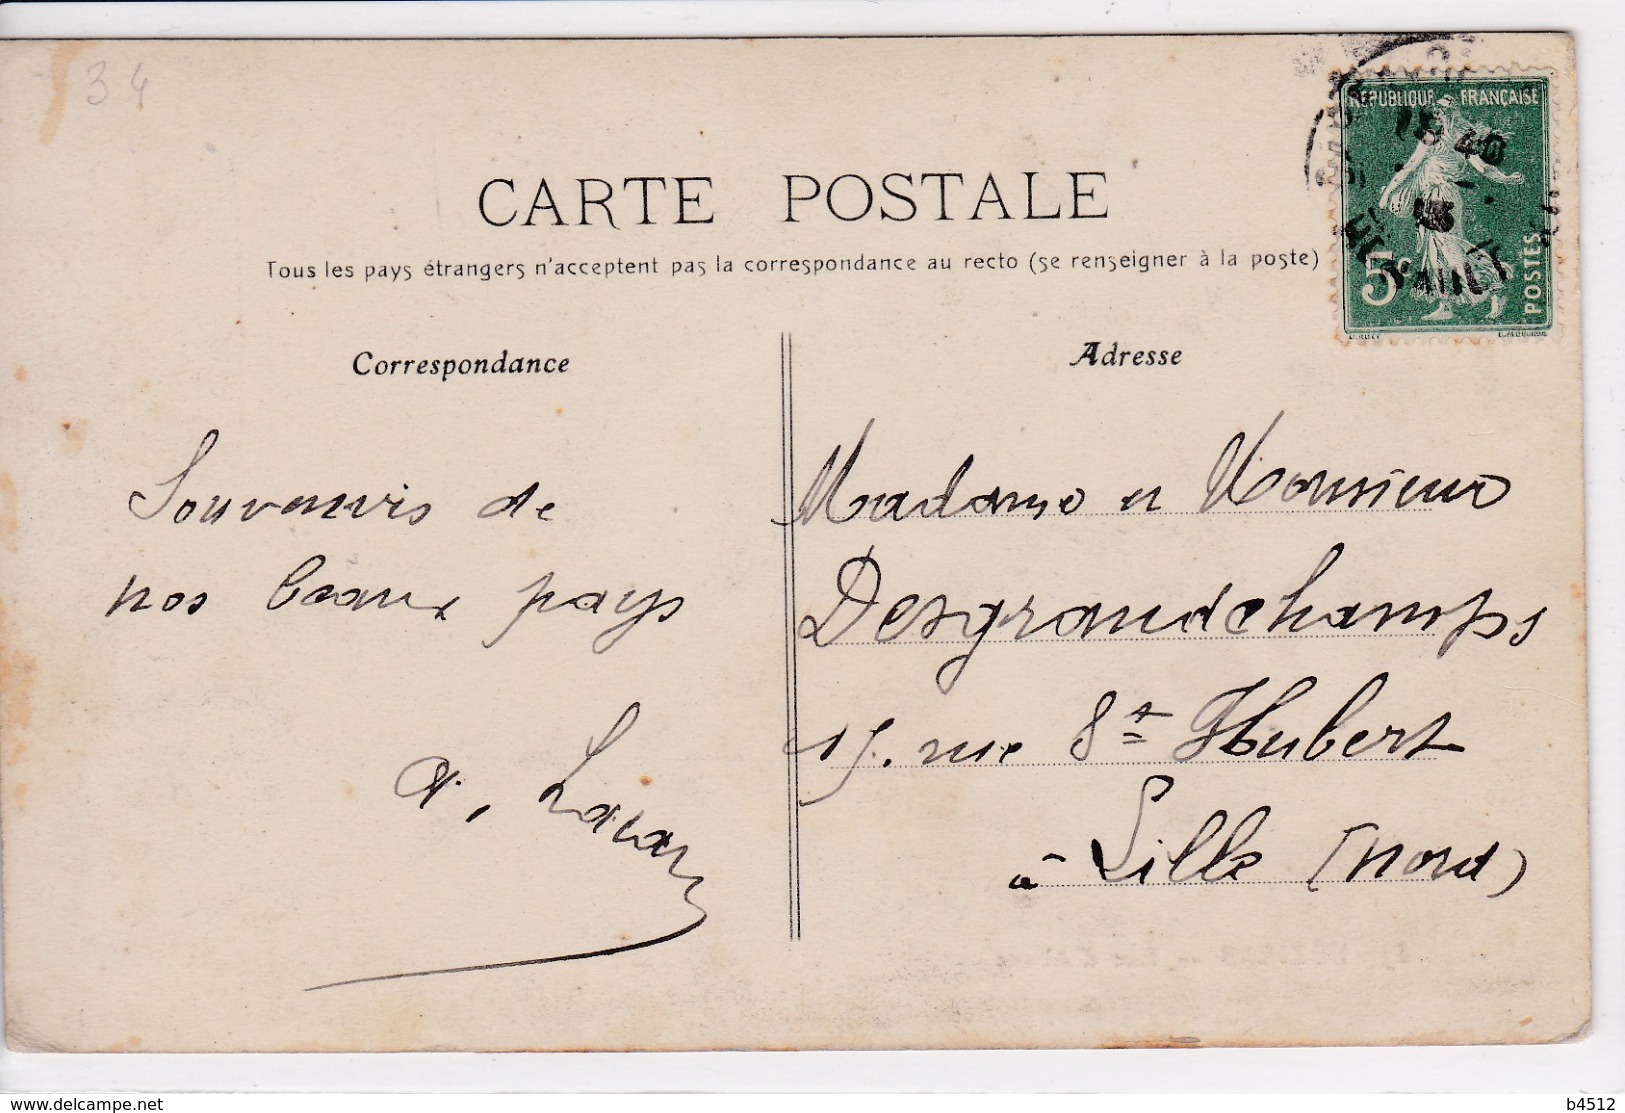 34
CARTE POSTALE
Tous les pays étrangers n'acceptent pas la correspondance au recto (se renseigner à la poste)
REPUBLIQUE FRANÇAISE
18 40
13
5c
POSTES
Correspondance
Adresse
Souvenirs de
nos beaux pays
a. Lacan
Madame et Monsieur
Desgrandchamps
15. rue St Hubert
à Lille (Nord)
www.delcampe.net
b4512